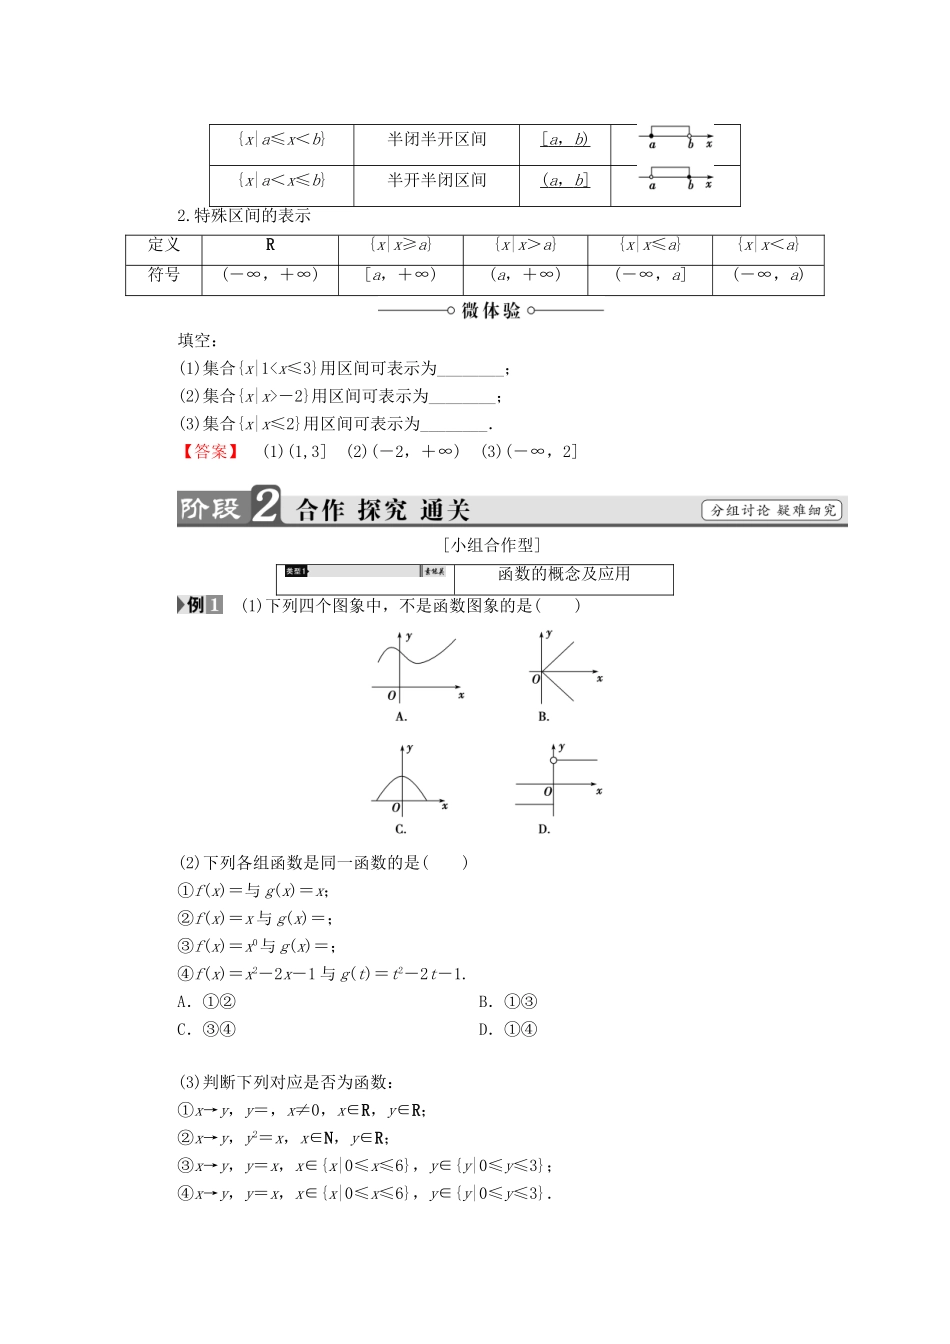 {x|a≤x<b} 半闭半开区间 [a, b) a b x
{x|a<x≤b} 半开半闭区间 (a, b] a b x
2.特殊区间的表示
定义 R {x|x≥a} {x|x>a} {x|x≤a} {x|x<a}
符号 (-∞,+∞) [a,+∞) (a,+∞) (-∞,a] (-∞,a)
微体验
填空:
(1)集合{x|1<x≤3}用区间可表示为________;
(2)集合{x|x>-2}用区间可表示为________;
(3)集合{x|x≤2}用区间可表示为________.
【答案】 (1)(1,3] (2)(-2,+∞) (3)(-∞,2]
阶段2 合作 探究 通关 分组讨论 疑难细究
[小组合作型]
类型1 函数的概念及应用
例1 (1)下列四个图象中,不是函数图象的是( )
y O x y O x
A. B.
y O x y O x
C. D.
(2)下列各组函数是同一函数的是( )
①f(x)=与g(x)=x;
②f(x)=x与g(x)=;
③f(x)=x⁰与g(x)=;
④f(x)=x²-2x-1与g(t)=t²-2t-1.
A.①② B.①③
C.③④ D.①④
(3)判断下列对应是否为函数:
①x→y,y=,x≠0,x∈R,y∈R;
②x→y,y²=x,x∈N,y∈R;
③x→y,y=x,x∈{x|0≤x≤6},y∈{y|0≤y≤3};
④x→y,y=x,x∈{x|0≤x≤6},y∈{y|0≤y≤3}.